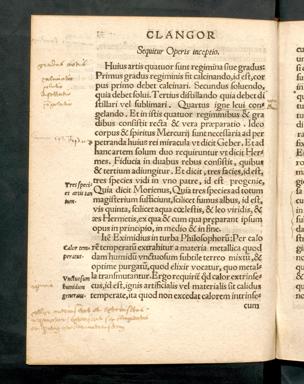 CLANGOR
Sequitur Operis inceptio.
Huius artis quatuor sunt regimina siue gradus:
Primus gradus regiminis est calcinando, id est, cor
pus primo debet calcinari. Secundus soluendo,
quia debet solui. Tertius distillando quia debet di
stillari vel sublimari. Quartus igne leui con
gelando. Et in istis quatuor regiminibus & gra
dibus consistit recta & vera præparatio. Ideo
corpus & spiritus Mercurij sunt necessaria ad per
petranda huius rei miracula vt dicit Geber. Et ad
hanc artem solum duo requiruntur vt dicit Her
mes. Fiducia in duabus rebus consistit, quibus
& tertium adiungitur. Et dicit, tres facies, id est,
tres species vidi in vno patre, id est progenie,
Quia dicit Morienus, Quia tres species ad totum
magisterium sufficiunt, scilicet fumus albus, id est,
vis quinta, scilicet aqua cœlestis, & leo viridis, &
æs Hermetis, ex qua & cum qua preparant ipsum
opus in principio, in medio & in fine.
Itē Eximidius in turba Philosophorū: Per calo
rē temperatū extrahitur a materia metallica quod
dam humidū vnctuosum subtile terreo mixtū, &
optime purgatū, quod elixir vocatur, quo metal
la transmutantur. Ergo requirit' qd calor extrinse
cus, id est, ignis artificialis vel materialis sit calidus
temperate, ita quod non excedat calorem intrinse
cum
Tres speci
es artis tan
tum.
Calor tem-
peratus.
Vnctuosum
humidum
generat.